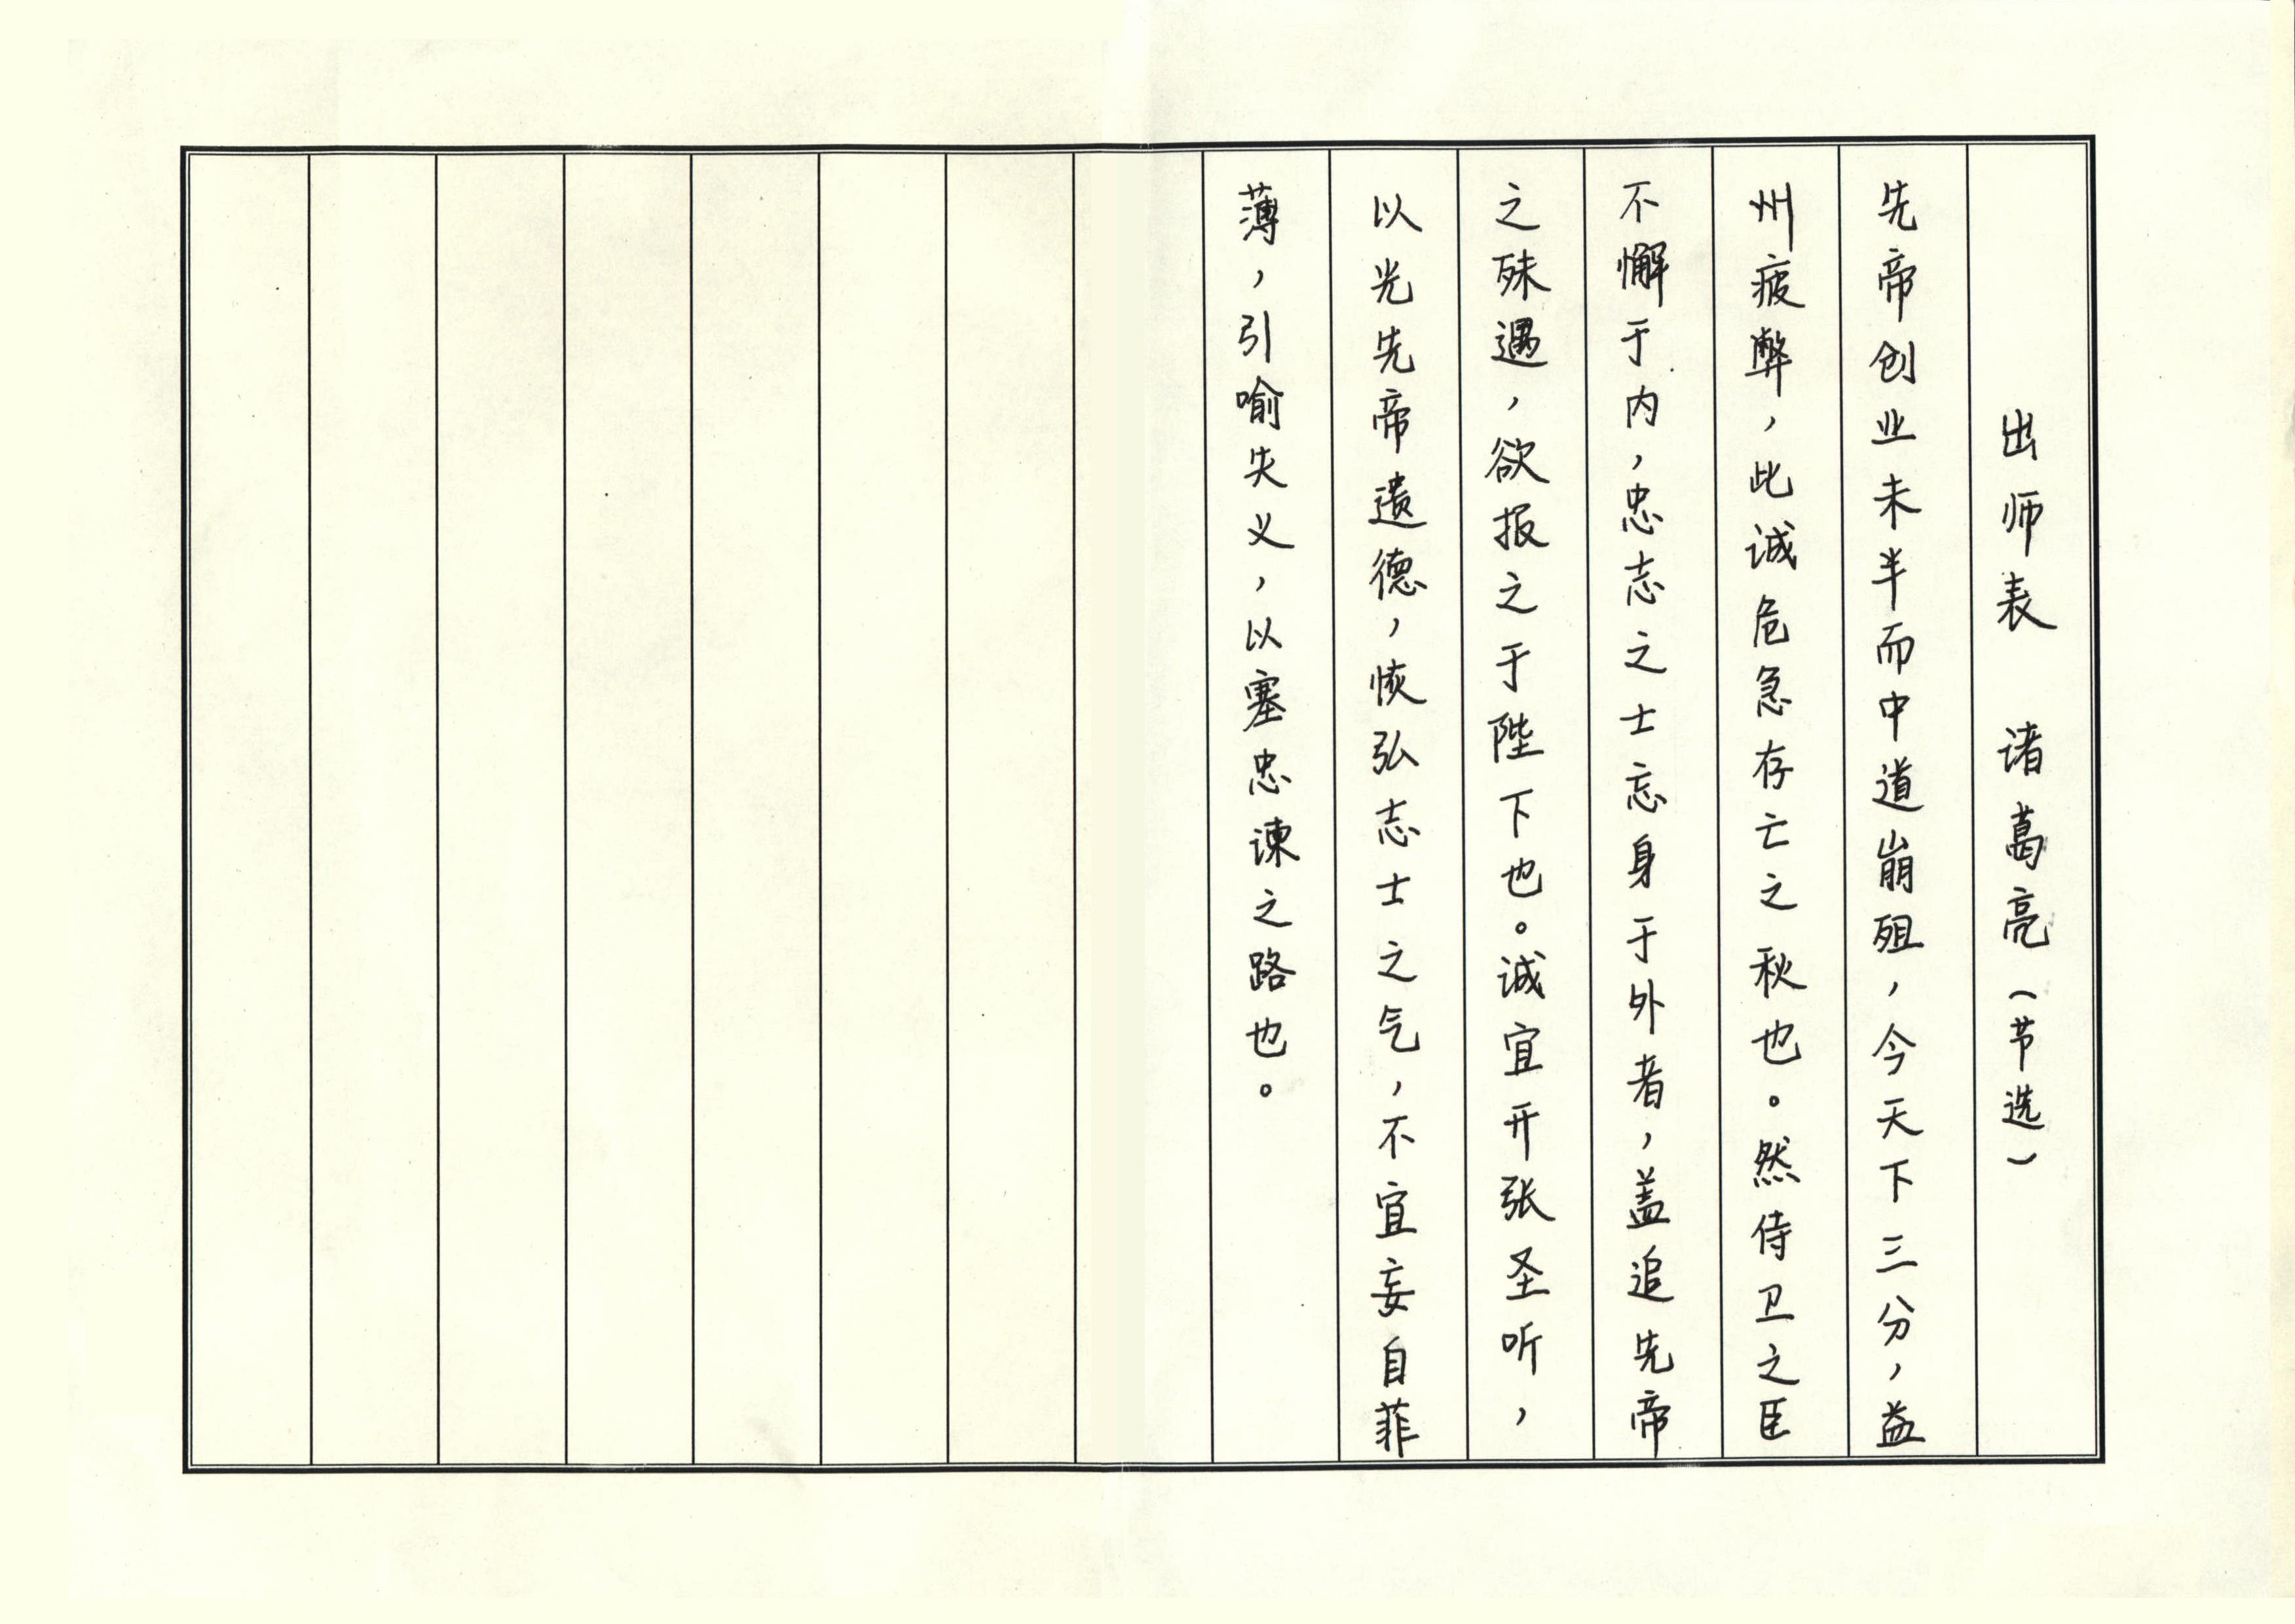 出师表 诸葛亮（节选）
先帝创业未半而中道崩殂，今天下三分，益
州疲弊，此诚危急存亡之秋也。然侍卫之臣
不懈于内，忠志之士忘身于外者，盖追先帝
之殊遇，欲报之于陛下也。诚宜开张圣听，
以光先帝遗德，恢弘志士之气，不宜妄自菲
薄，引喻失义，以塞忠谏之路也。